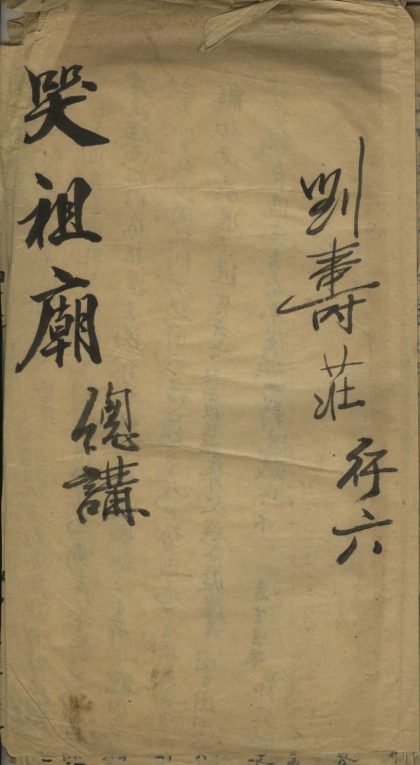 劉壽莊行六
哭祖廟總講